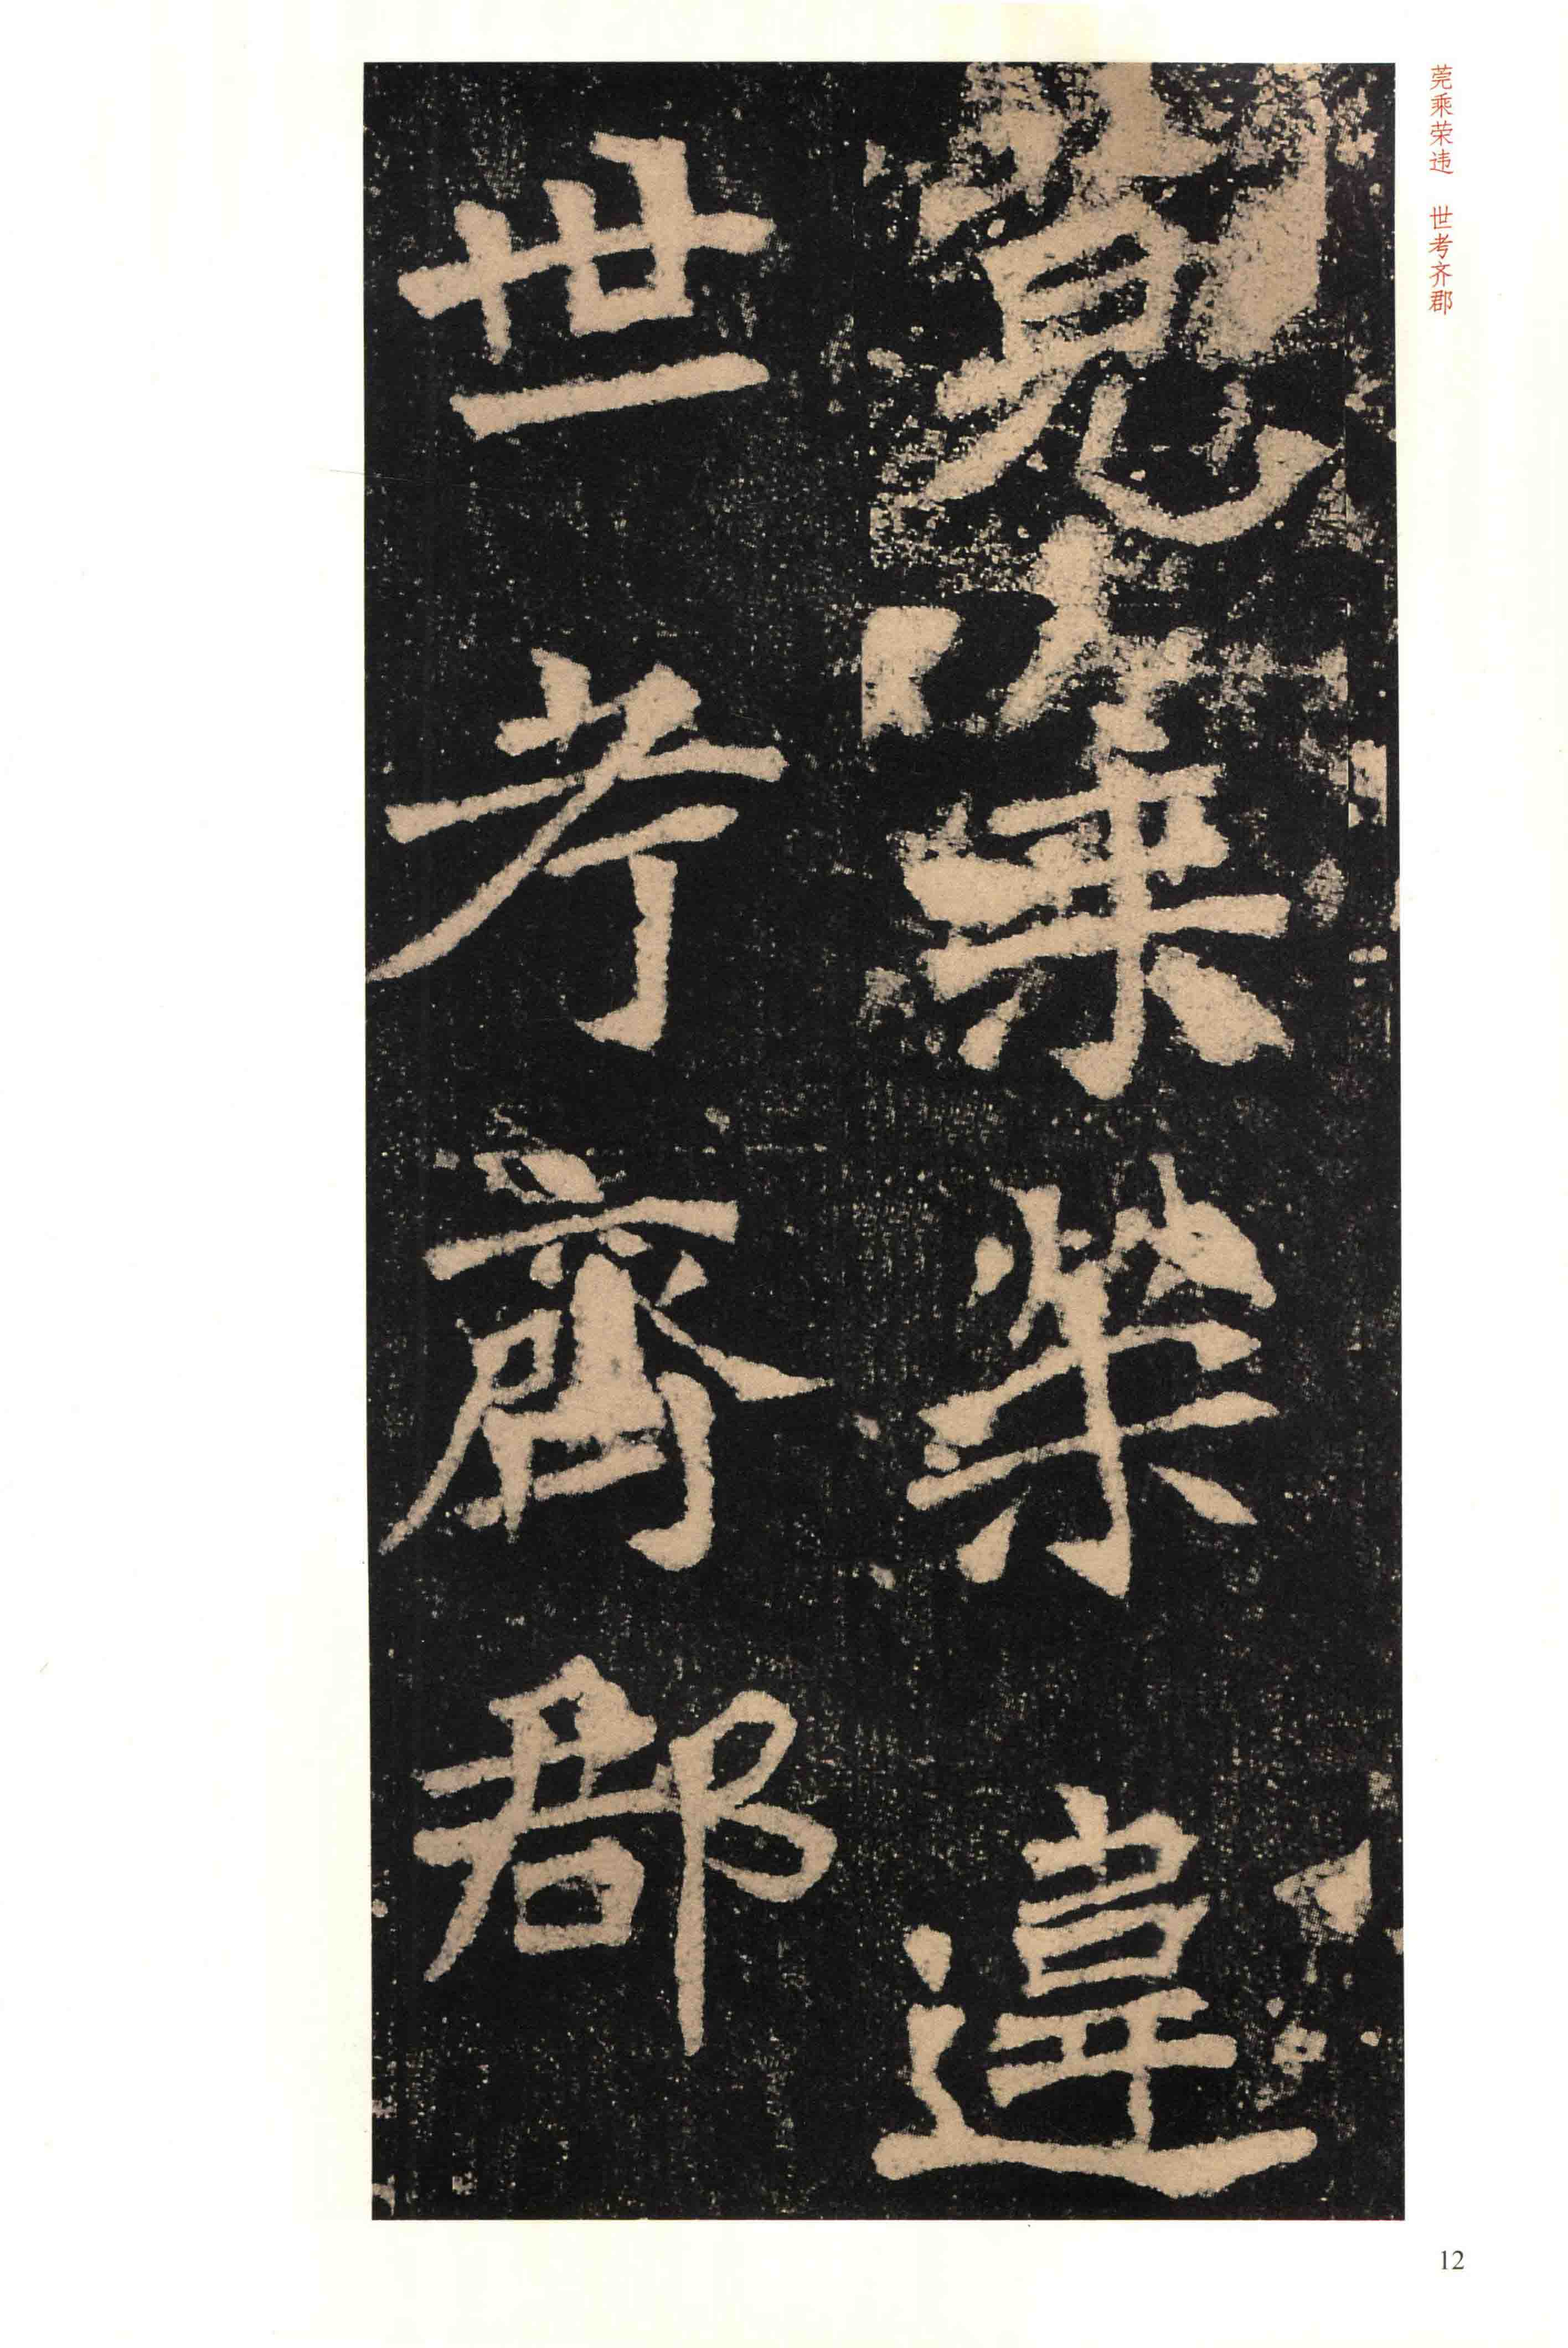 莞乘荣违 世考齐郡
莞乘榮違
世考齊郡
12